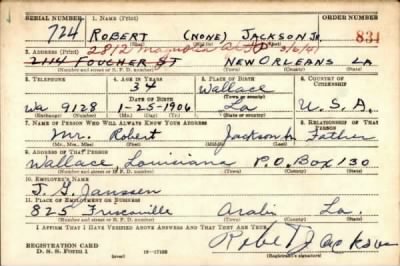 SERIAL NUMBER 1. NAME (Print) ORDER NUMBER
724 ROBERT (NONE) JACKSON Jr. 834
(First) (Middle) (Last)
2. ADDRESS (Print) 2812 Magnolia 3/6/41
2114 FOUCHER ST NEW ORLEANS LA
(Number and street or R. F. D. number) (Town) (County) (State)
3. TELEPHONE 4. AGE IN YEARS 5. PLACE OF BIRTH 6. COUNTRY OF CITIZENSHIP
34 Wallace
DATE OF BIRTH (Town or county)
Wa 9128 1-25-1906 La U.S.A.
(Exchange) (No.) (Mo.) (Day) (Yr.) (State or country)
7. NAME OF PERSON WHO WILL ALWAYS KNOW YOUR ADDRESS 8. RELATIONSHIP OF THAT PERSON
Mr. Robert Jackson Father
(Mr., Mrs., Miss) (First) (Middle) (Last)
9. ADDRESS OF THAT PERSON
Wallace, Louisiana P.O. Box 130
(Number and street or R. F. D. number) (Town) (County) (State)
10. EMPLOYER'S NAME
J. G. Janssen
11. PLACE OF EMPLOYMENT OR BUSINESS
825 Friscoville Arabi La
(Number and street or R. F. D. number) (Town) (County) (State)
I AFFIRM THAT I HAVE VERIFIED ABOVE ANSWERS AND THAT THEY ARE TRUE.
Robert Jackson
REGISTRATION CARD
D. S. S. FORM 1 (Registrant's signature)